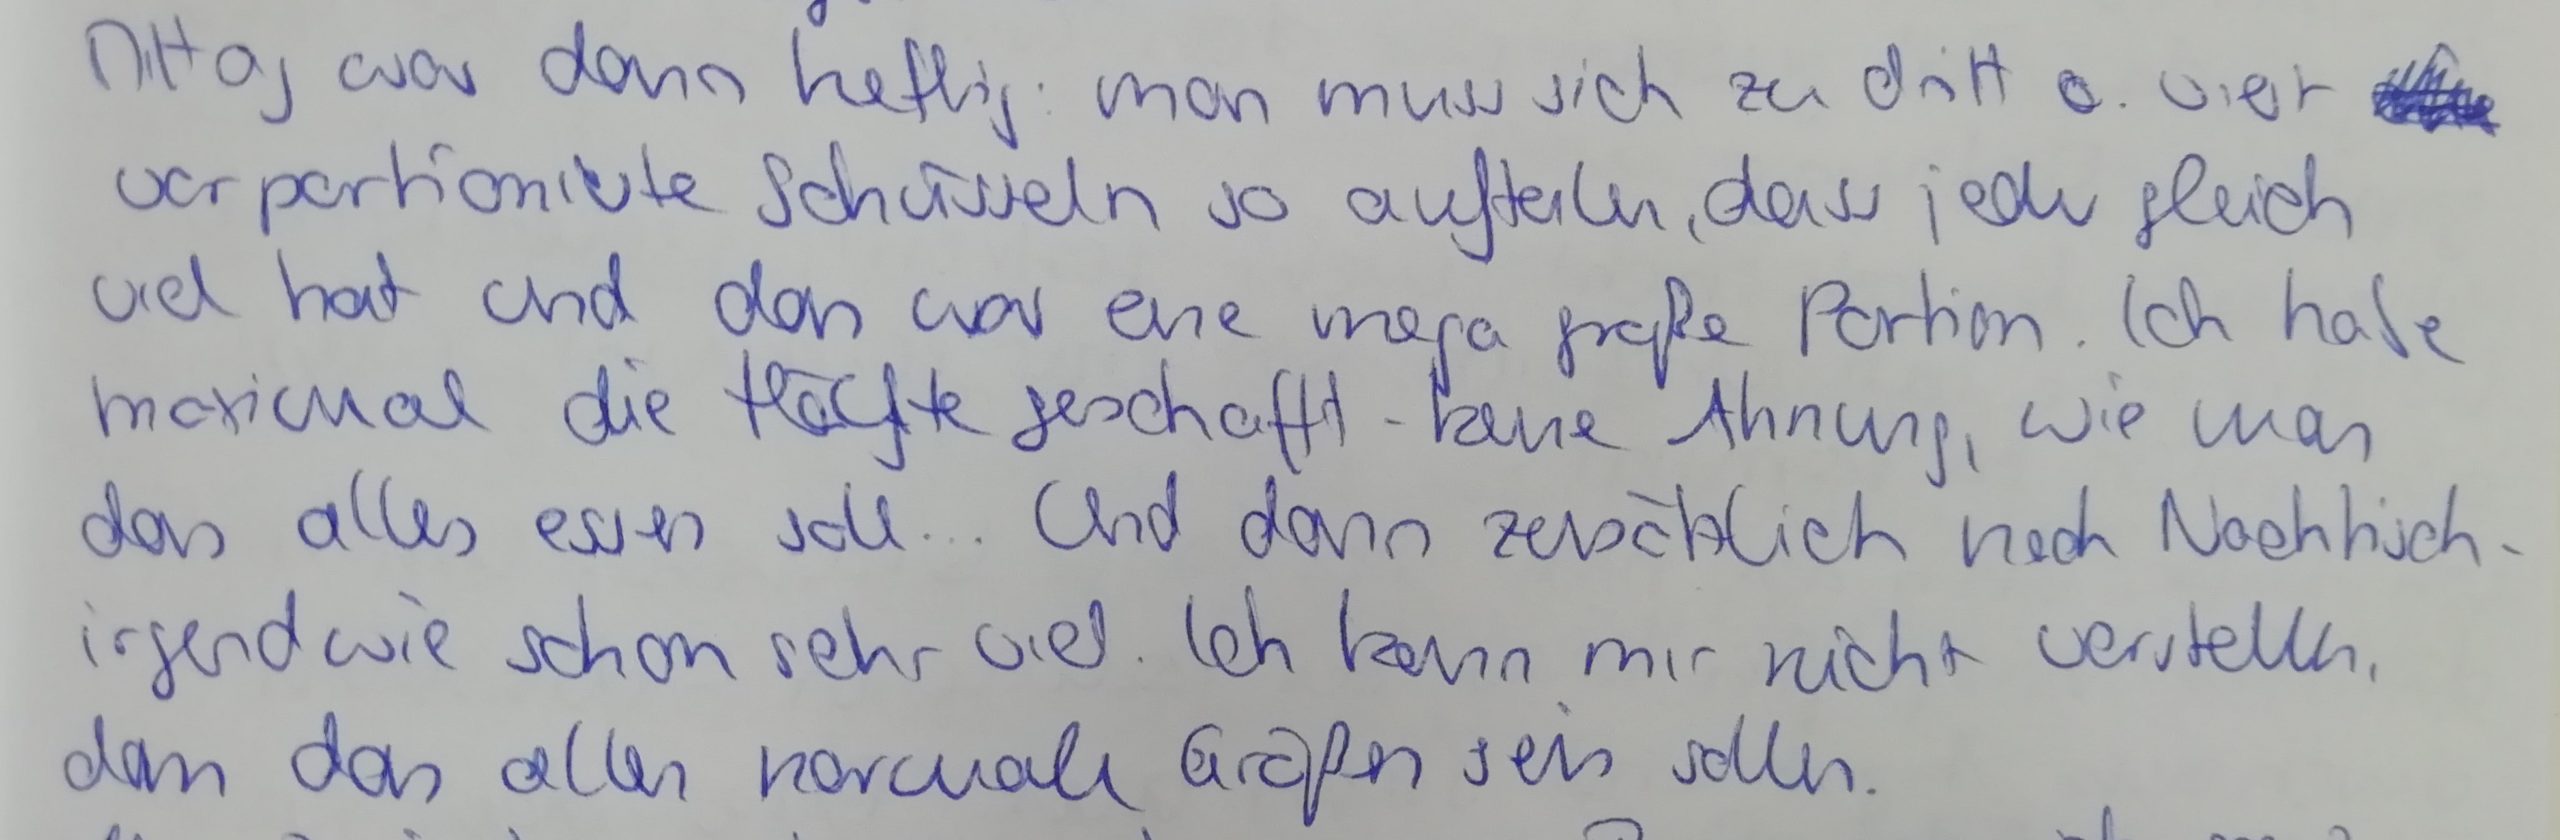 Mittag war dann heftig: man muss sich zu dritt o. viert
vorportionierte Schüsseln so aufteilen, dass jeder gleich
viel hat und das war eine mega große Portion. Ich habe
maximal die Hälfte geschafft - keine Ahnung, wie man
das alles essen soll... Und dann zusätzlich noch Nachtisch -
irgendwie schon sehr viel. Ich kann mir nicht vorstellen,
dass das alles normale Größen sein sollen.